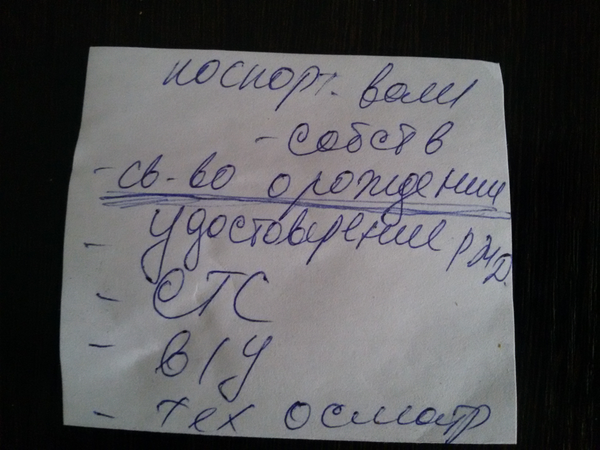 паспорт. вали
- собств
- св-во о рождении
- удостоверение РЖД
- СТС
- в/у
- тех осмотр